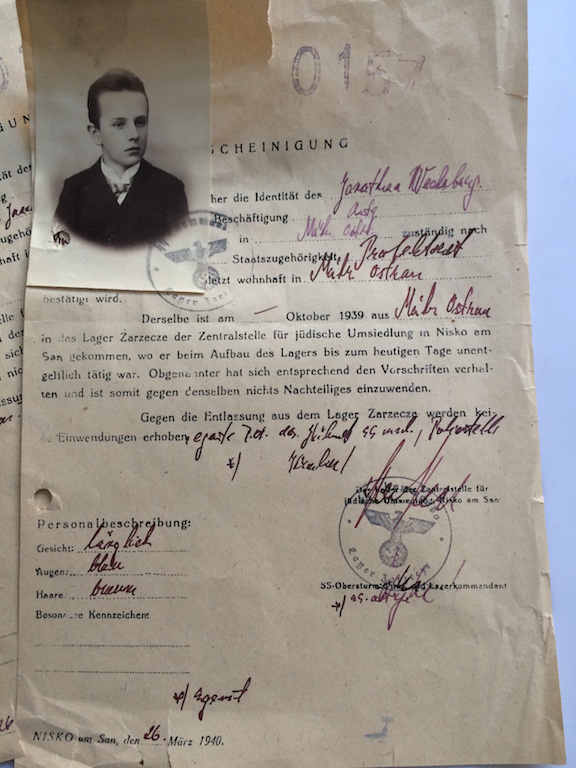 0157
SCHEINIGUNG
her die Identität des Jonathan
Beschäftigung
in Mähr Ostr. zuständig nach
Staatszugehörigkeit, Protektorat
letzt wohnhaft in Mähr Ostrau
bestätigt wird.
Derselbe ist am — Oktober 1939 aus Mähr Ostrau
in das Lager Zarzecze der Zentralstelle für jüdische Umsiedlung in Nisko am
San gekommen, wo er beim Aufbau des Lagers bis zum heutigen Tage unent-
geltlich tätig war. Obgenannter hat sich entsprechend den Vorschriften verhal-
ten und ist somit gegen denselben nichts Nachteiliges einzuwenden.
Gegen die Entlassung aus dem Lager Zarzecze werden kei-
ne Einwendungen erhoben
*/
Der Leiter der Zentralstelle für
jüdische Umsiedlung, Nisko am San:
Personalbeschreibung:
Gesicht: länglich
Augen: blau
Haare braun
SS-Obersturmführer und Lagerkommandant
Besondere Kennzeichen:
*/
NISKO am San, den 26. März 1940.